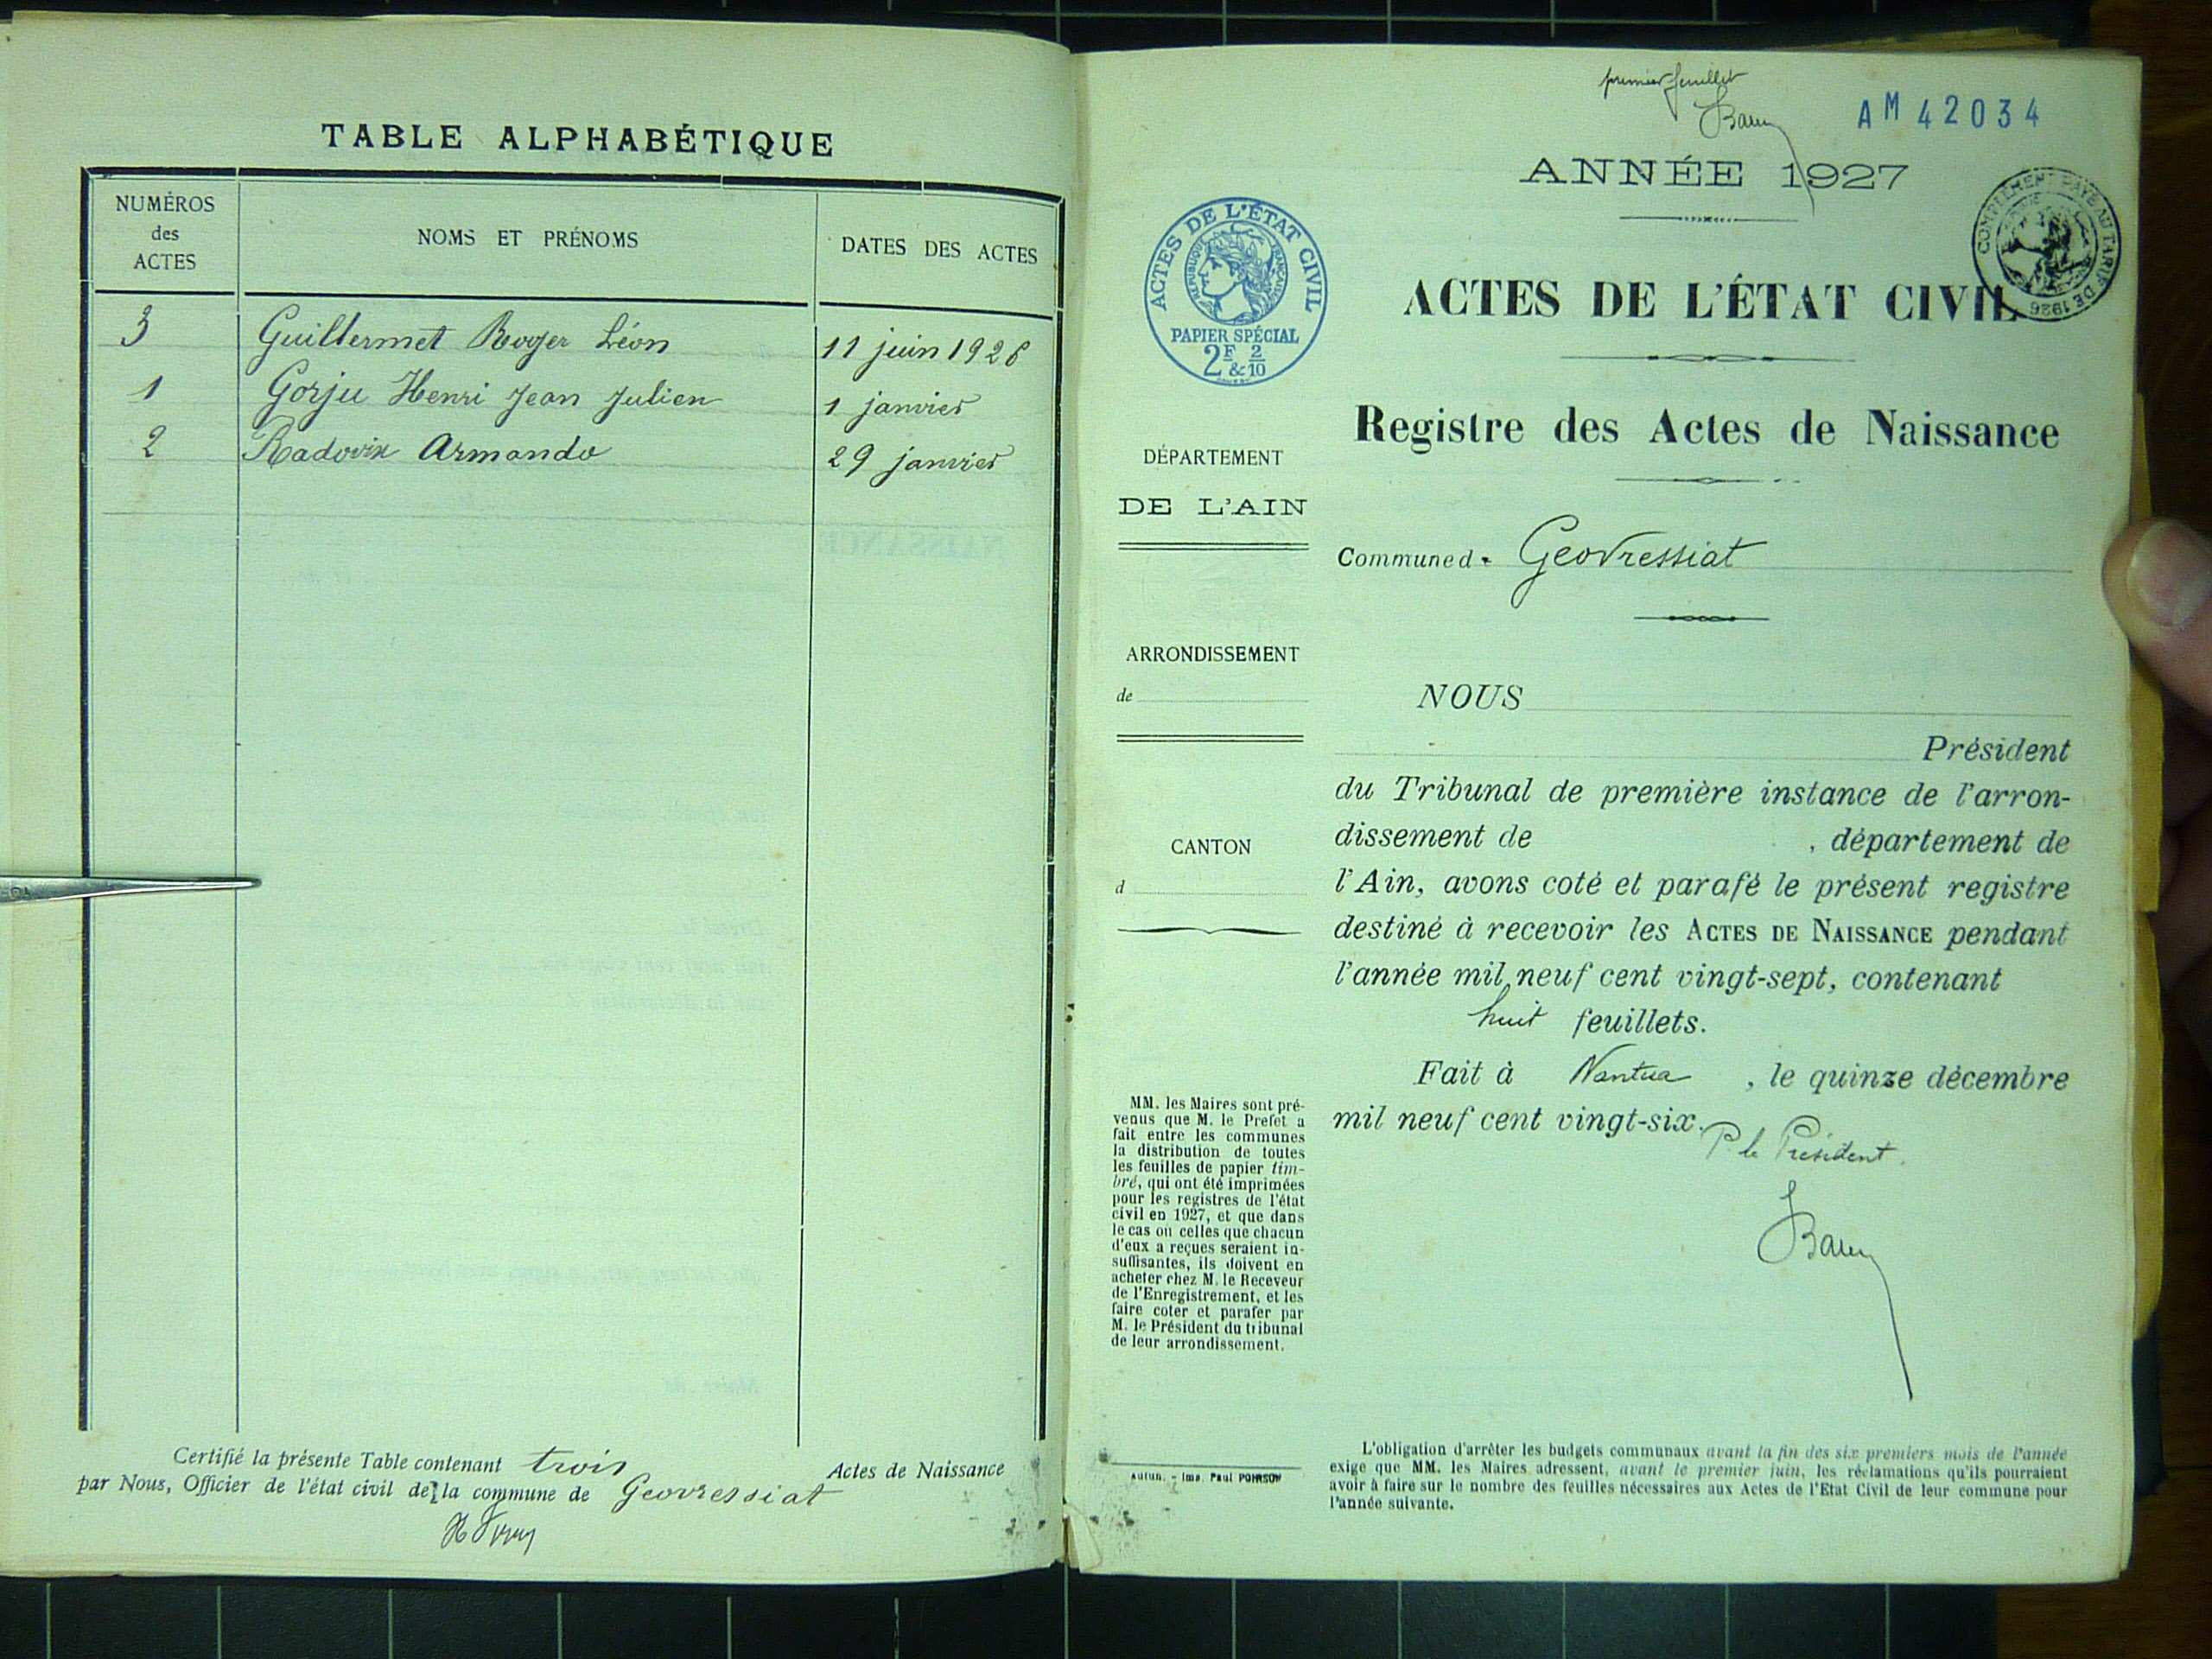 TABLE ALPHABÉTIQUE
NUMÉROS
des
ACTES
NOMS ET PRÉNOMS
DATES DES ACTES
3 Guillermet Roger Léon 11 juin 1926
1 Gorju Henri Jean Julien 1 janvier
2 Radovix Armando 29 janvier
Certifié la présente Table contenant trois Actes de Naissance
par Nous, Officier de l'état civil de la commune de Geovressiat
premier feuillet
AM 42034
ANNÉE 1927
COMPLÉMENT PAYÉ AU TARIF DE 1926
ACTES DE L'ÉTAT CIVIL
RÉPUBLIQUE FRANÇAISE
PAPIER SPÉCIAL
2F & 2/10
ACTES DE L'ÉTAT CIVIL
Registre des Actes de Naissance
DÉPARTEMENT
DE L'AIN
Commune de Geovressiat
ARRONDISSEMENT
de
CANTON
d
NOUS
Président
du Tribunal de première instance de l'arron-
dissement de , département de
l'Ain, avons coté et parafé le présent registre
destiné à recevoir les ACTES DE NAISSANCE pendant
l'année mil neuf cent vingt-sept, contenant
huit feuillets.
Fait à Nantua, le quinze décembre
mil neuf cent vingt-six.
P. le Président.
MM. les Maires sont pré-
venus que M. le Prefet a
fait entre les communes
la distribution de toutes
les feuilles de papier tim-
bré, qui ont été imprimées
pour les registres de l'état
civil en 1927, et que dans
le cas où celles que chacun
d'eux a reçues seraient in-
suffisantes, ils doivent en
acheter chez M. le Receveur
de l'Enregistrement, et les
faire coter et parafer par
M. le Président du tribunal
de leur arrondissement.
Autun. - Imp. Paul POIRSON
L'obligation d'arrêter les budgets communaux avant la fin des six premiers mois de l'année
exige que MM. les Maires adressent, avant le premier juin, les réclamations qu'ils pourraient
avoir à faire sur le nombre des feuilles nécessaires aux Actes de l'Etat Civil de leur commune pour
l'année suivante.